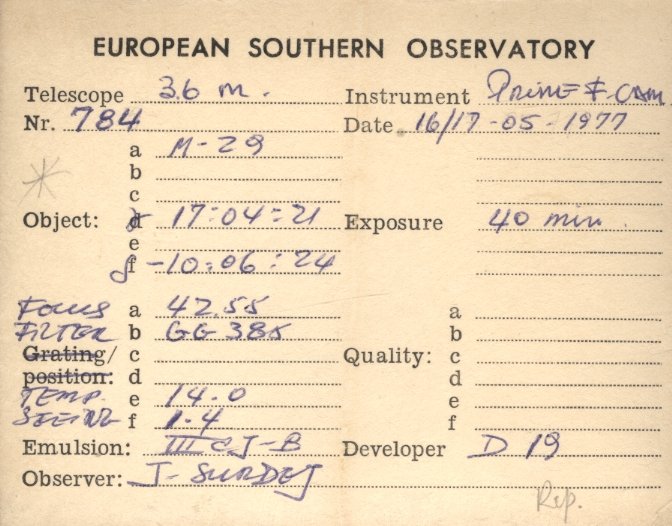 EUROPEAN SOUTHERN OBSERVATORY
Telescope 3.6 m. Instrument PRIME F. CAM
Nr. 784 Date 16/17-05-1977
a M-29
b
c
Object: d 17:04:21 Exposure 40 min.
e
f -10:06:24
Focus a 42.55 a
FILTER b GG 385 b
Grating/ c Quality: c
position: d d
TEMP. e 14.0 e
SEEING f 1.4 f
Emulsion: III a J-B Developer D 19
Observer: J. SURDEJ
Rep.